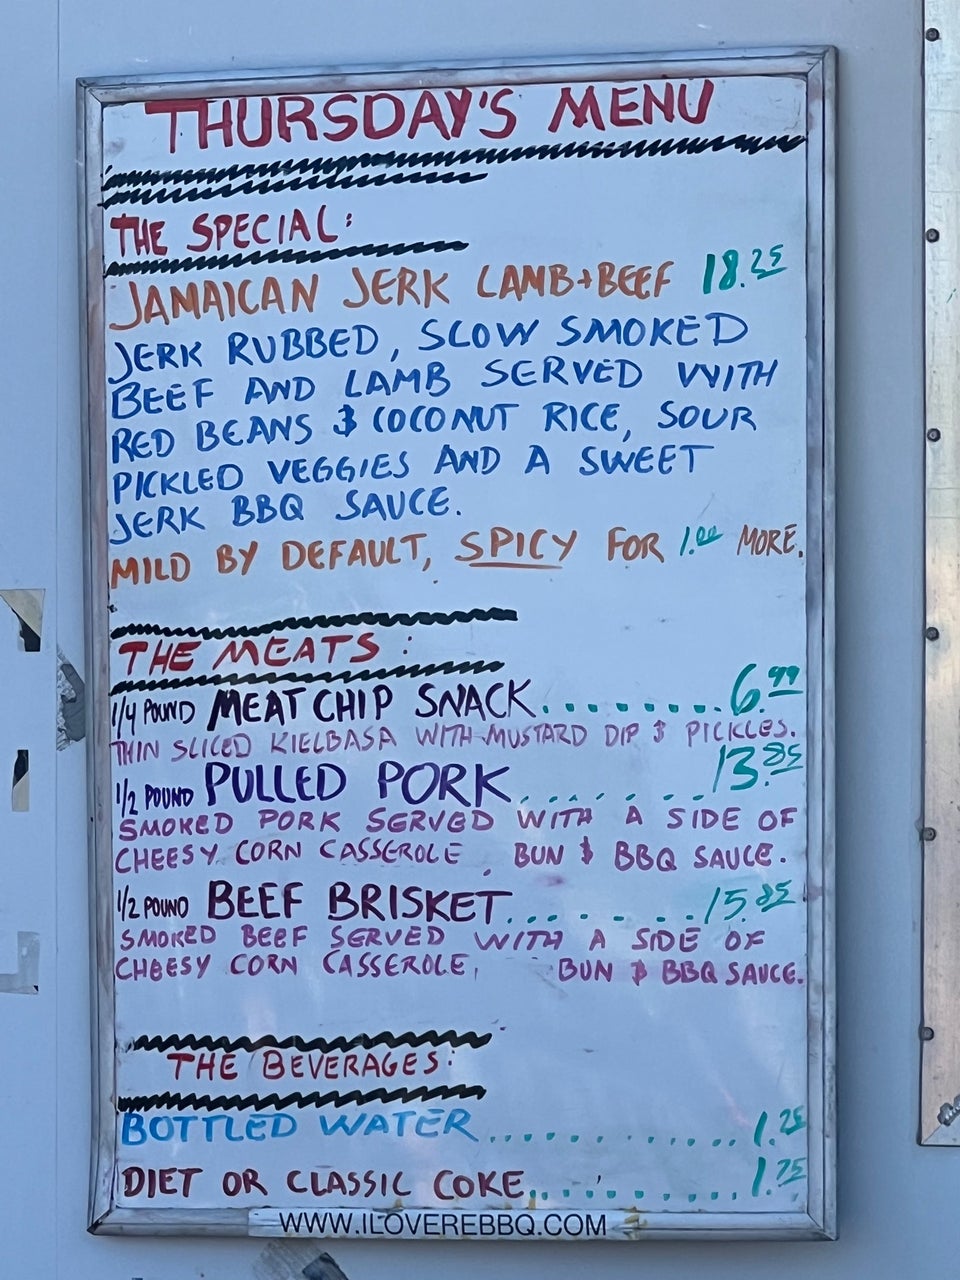 THURSDAY'S MENU
THE SPECIAL:
JAMAICAN JERK LAMB+BEEF 18.25
JERK RUBBED, SLOW SMOKED
BEEF AND LAMB SERVED WITH
RED BEANS & COCONUT RICE, SOUR
PICKLED VEGGIES AND A SWEET
JERK BBQ SAUCE.
MILD BY DEFAULT, SPICY FOR 1.00 MORE.
THE MEATS:
1/4 POUND MEAT CHIP SNACK.........6.99
THIN SLICED KIELBASA WITH MUSTARD DIP & PICKLES.
1/2 POUND PULLED PORK........13.85
SMOKED PORK SERVED WITH A SIDE OF
CHEESY CORN CASSEROLE, BUN & BBQ SAUCE.
1/2 POUND BEEF BRISKET........15.85
SMOKED BEEF SERVED WITH A SIDE OF
CHEESY CORN CASSEROLE, BUN & BBQ SAUCE.
THE BEVERAGES:
BOTTLED WATER............1.25
DIET OR CLASSIC COKE..........1.75
WWW.ILOVEREBBQ.COM